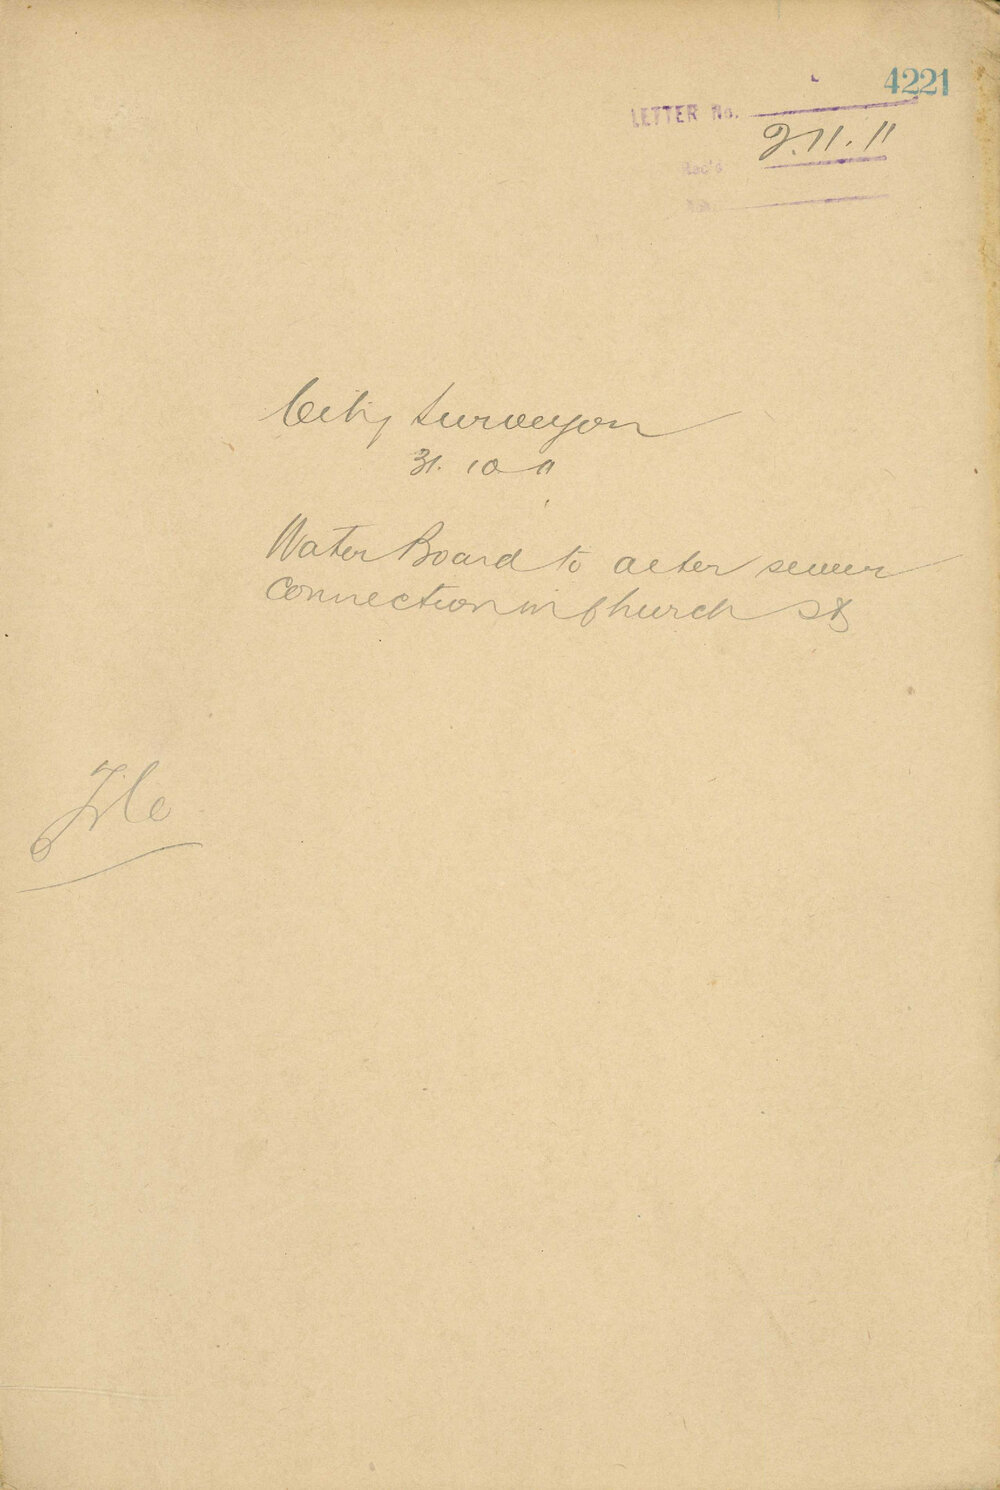 4221
LETTER No.
2.11.11
Rec'd
City Surveyor
31.10 11
Water Board to alter sewer
connection in Church St
File